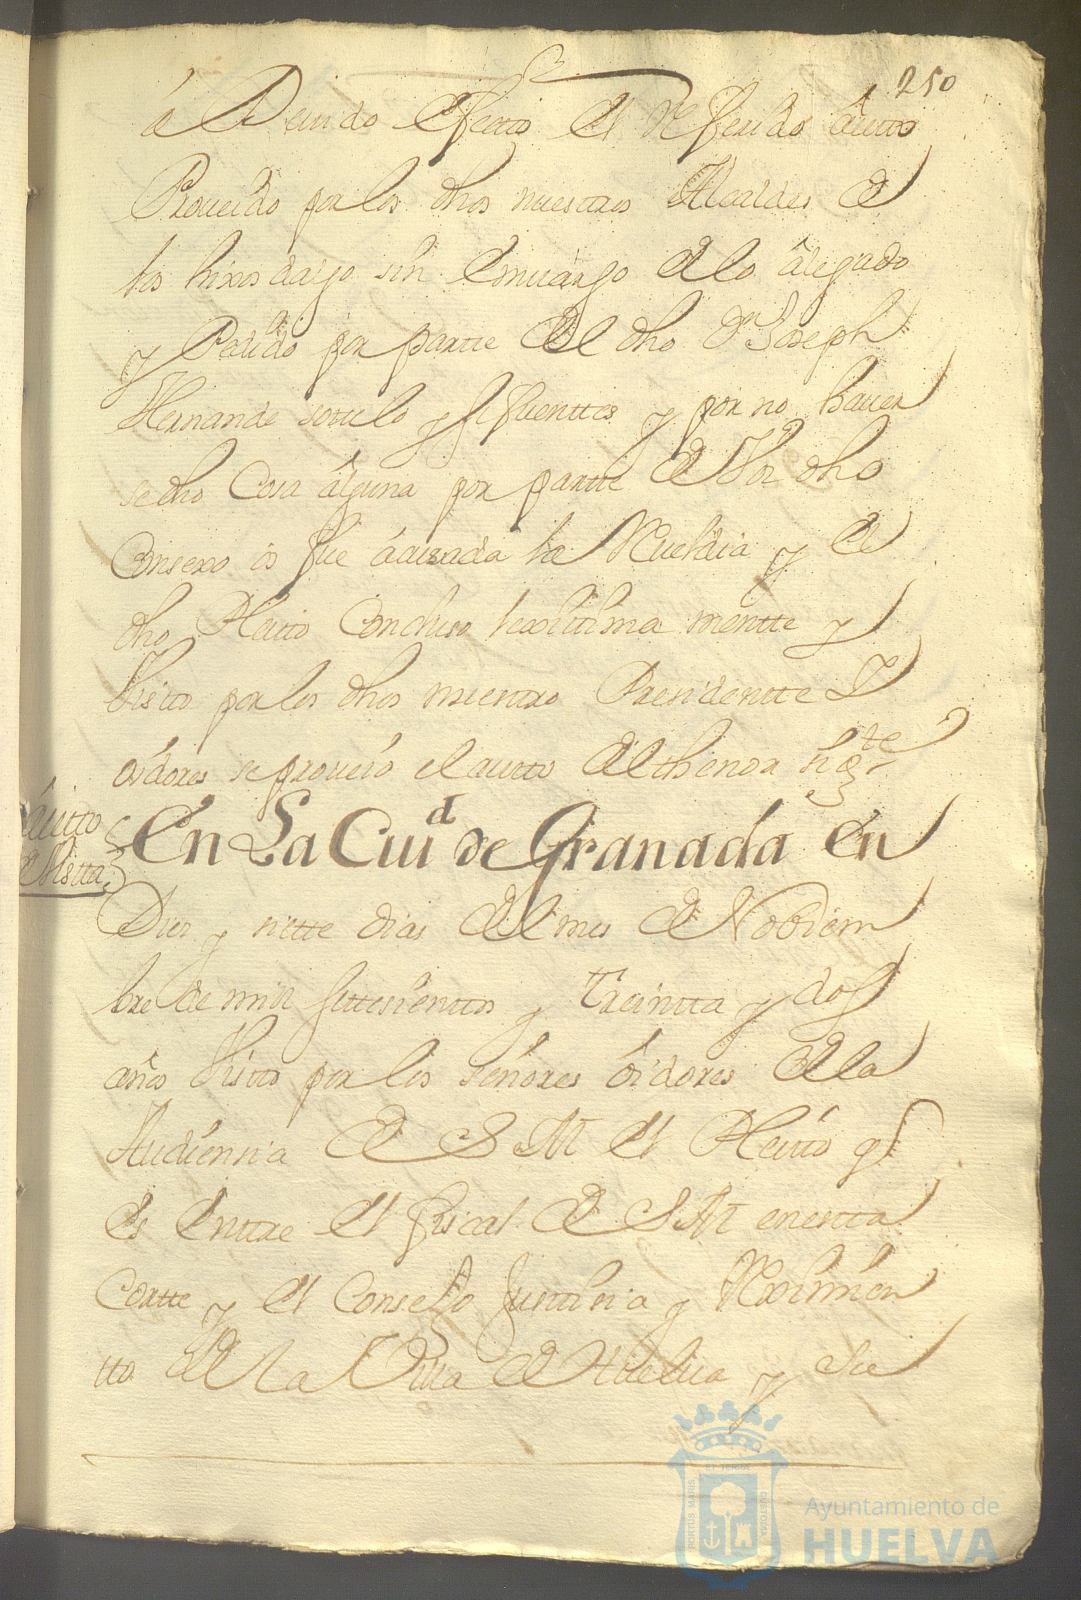 250
á Devido Efecto El Referido áutto
Proueido por los dhos nuestros Alcaldes de
los hixos dalgo sin Emuargo de lo álegado
y Pedido por partte del dho Dn Joseph
Hernande sotielo y sifuenttes y por no hauer
se dho Cosa álguna por partte de Vos dho
Consexo os fue ácusada la Reueldia y el
dho Pleitto Concluso lexitima mentte y
Visto por los dhos nuestro Presidentte Y
oidores se proueió el autto del thenor sigte
áutto
de Vistta
En La Ciud de Granada En
Diez y siette dias del mes de Nobiem
bre de mill settesienttos y Treintta y dos
años Visto por los señores óidores de la
Audiensia de S M El Pleitto q
Es Enttre El fiscal de S M en estta
Cortte y El Consejo Justtisia y Reximien
tto de la Villa de Huelua y Su
PORTUS MARIS ET TERRAE CUSTODIA
Ayuntamiento de
HUELVA